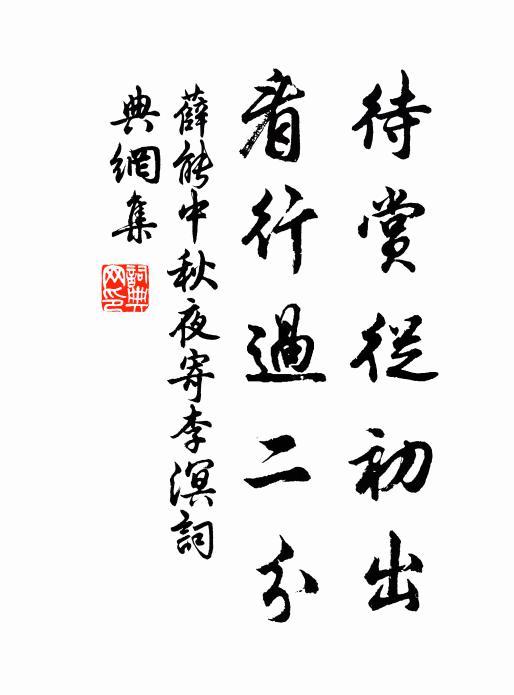 待賞從初出
看行過二分
薛能中秋夜寄李溟詞
典網集
詞典
网印